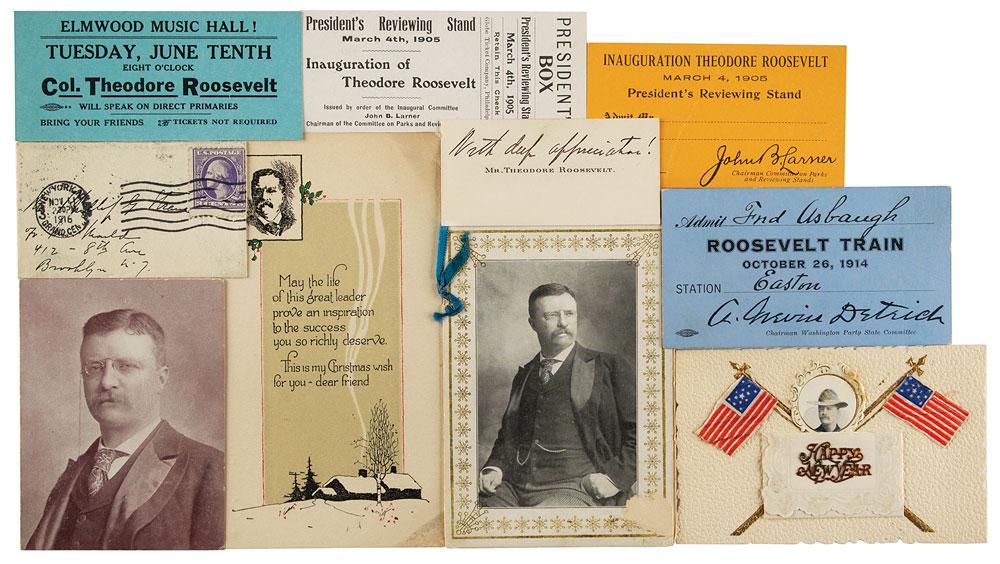 ELMWOOD MUSIC HALL!
TUESDAY, JUNE TENTH
EIGHT O'CLOCK
Col. Theodore Roosevelt
WILL SPEAK ON DIRECT PRIMARIES
BRING YOUR FRIENDS TICKETS NOT REQUIRED
President's Reviewing Stand
March 4th, 1905
Inauguration of
Theodore Roosevelt
Issued by order of the Inaugural Committee
John B. Larner
Chairman of the Committee on Parks and Revi
Globe Ticket Company, Philadelp
Retain This Check
March 4th, 1905
President's Reviewing Sta
BOX
PRESIDENT'
INAUGURATION THEODORE ROOSEVELT
MARCH 4, 1905
President's Reviewing Stand
Admit Mr.
John B Larner
Chairman Committee on Parks
and Reviewing Stands
With deep appreciation!
MR. THEODORE ROOSEVELT.
Admit Fred Asbaugh
ROOSEVELT TRAIN
OCTOBER 26, 1914
STATION Easton
A. Nevin Detrich
Chairman Washington Party State Committee
NEW YORK, N.Y.
NOV
1916
GRAND CEN
U.S. POSTAGE
412 - 8th Ave
Brooklyn N.Y.
May the life
of this great leader
prove an inspiration
to the success
you so richly deserve.
This is my Christmas wish
for you - dear friend
HAPPY
NEW YEAR